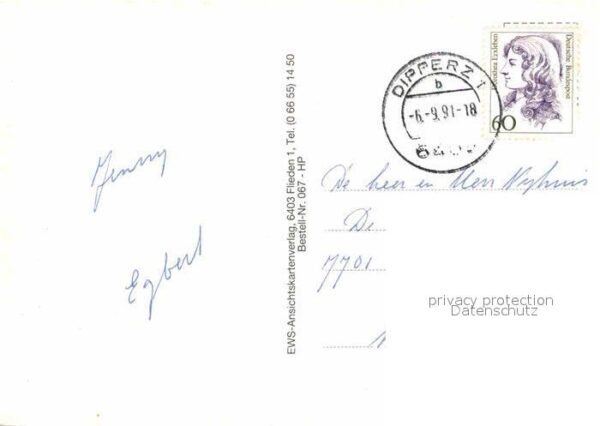 Jenny
Egbert
EWS-Ansichtskartenverlag, 6403 Flieden 1, Tel. (0 66 55) 14 50
Bestell-Nr. 067 - HP
DIPPERZ 1
b
-6.-9.91-18
Dorothea Erxleben
Deutsche Bundespost
60
De heer en Mevr Nyhuis
De
7701
privacy protection
Datenschutz